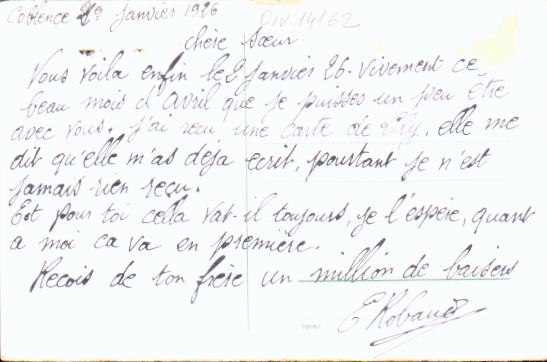 Coblence 2 Janvier 1926
DIV 14162
chère Sœur
Vous voila enfin le 2 Janvier 26. Vivement ce
beau mois d'Avril que je puisses un peu etre
avec vous. j'ai recu une carte de Lily, elle me
dit qu'elle m'as déja ecrit, pourtant je n'est
jamais rien reçu.
Est pour toi cella vat-il toujours, je l'espère, quant
a moi ca va en première.
Recois de ton frère un million de baisers